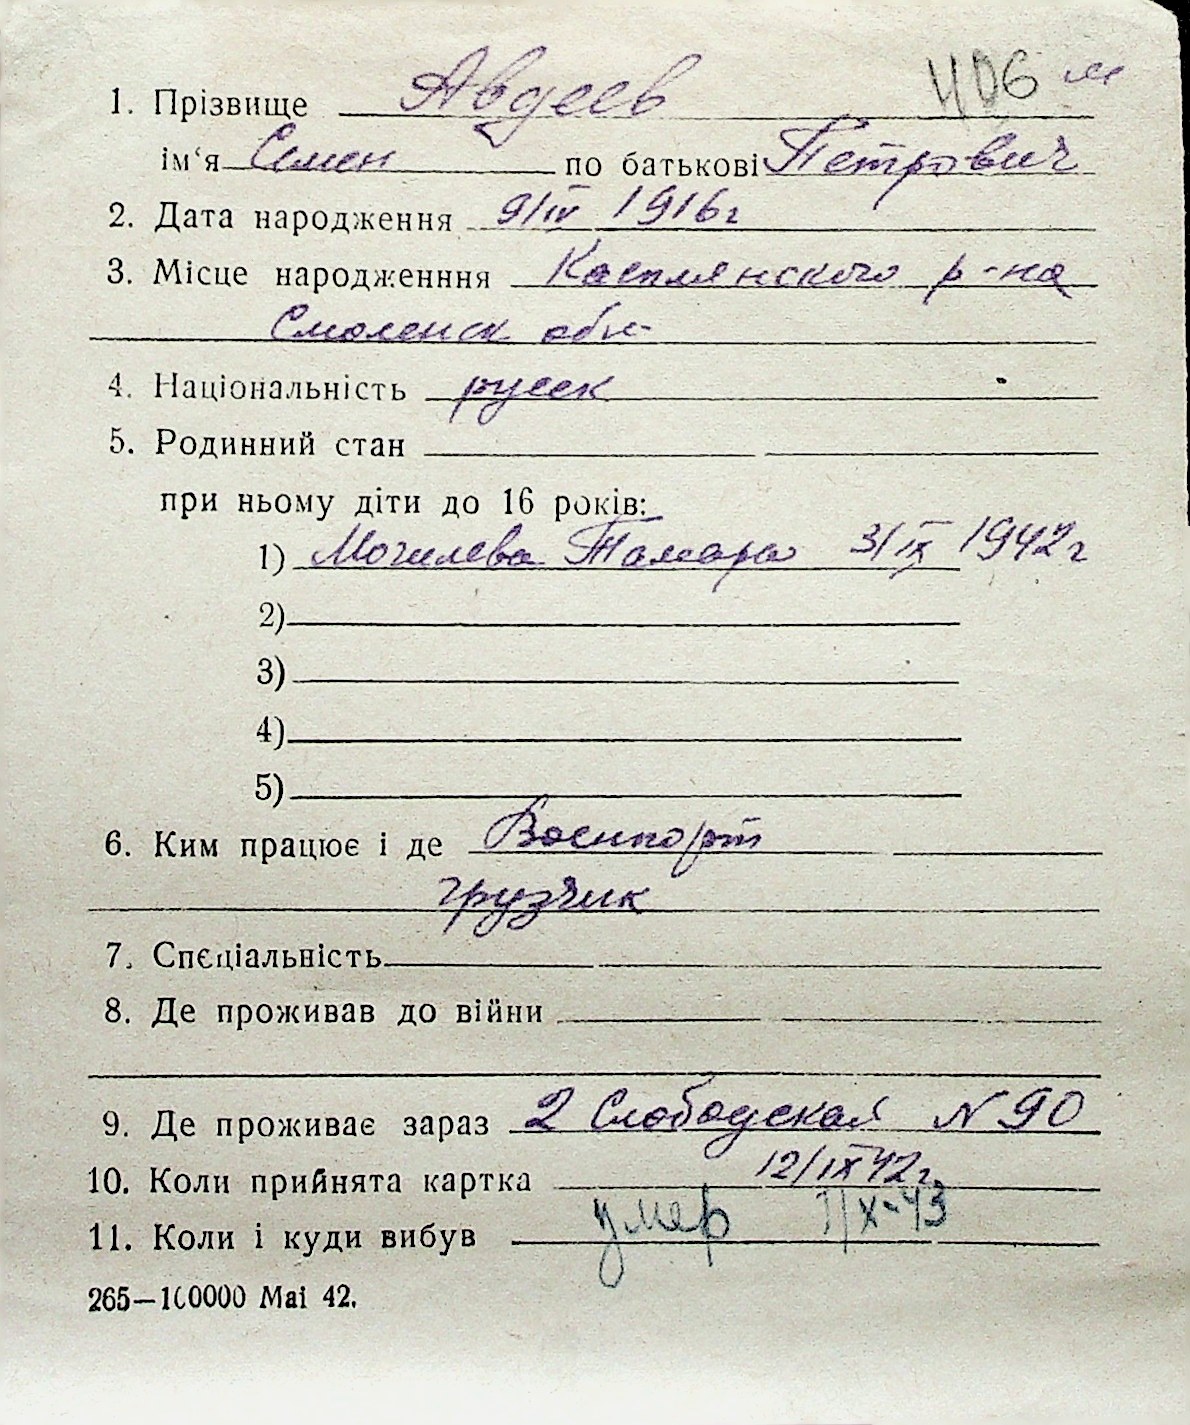 406 м
1. Прізвище Авдеев
ім‘я Семен по батькові Петрович
2. Дата народження 9/IV 1916г
3. Місце народженння Касплянского р-на
Смоленск обл-
4. Національність русск
5. Родинний стан
при ньому діти до 16 років:
1) Могилева Тамара 3/IX 1942г
2)
3)
4)
5)
6. Ким працює і де Военпорт
грузчик
7. Спєціальність
8. Де проживав до війни
9. Де проживає зараз 2 Слободская N 90
10. Коли прийнята картка 12/IX 42г.
11. Коли і куди вибув умер 7/X-43
265—100000 Mai 42.